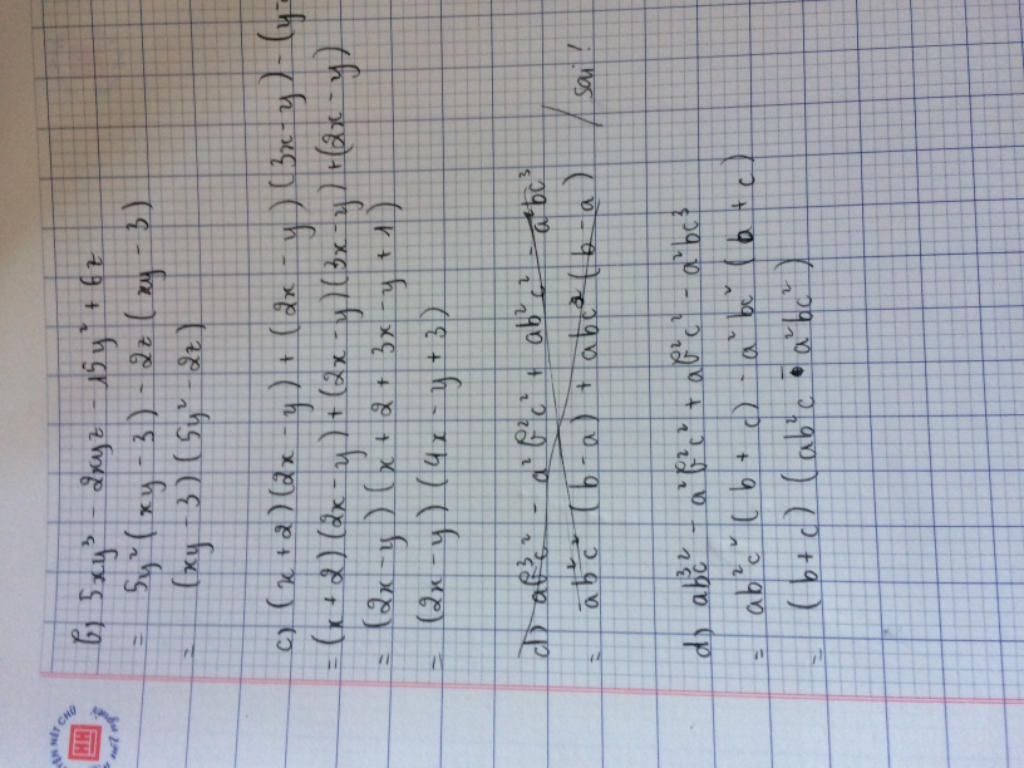 b) 5xy³ - 2xyz - 15y² + 6z
= 5y²(xy - 3) - 2z(xy - 3)
= (xy - 3)(5y² - 2z)
c) (x + 2)(2x - y) + (2x - y)(3x - y) - (y-
= (x + 2)(2x - y) + (2x - y)(3x - y) + (2x - y)
= (2x - y)(x + 2 + 3x - y + 1)
= (2x - y)(4x - y + 3)
d) ab³c² - a²b²c² + ab²c² - a²bc³
= ab²c²(b - a) + abc²(b - a) / sai!
d) ab³c² - a²b²c² + ab²c² - a²bc³
= ab²c²(b + c) - a²bc²(b + c)
= (b + c)(ab²c - a²bc²)
HH